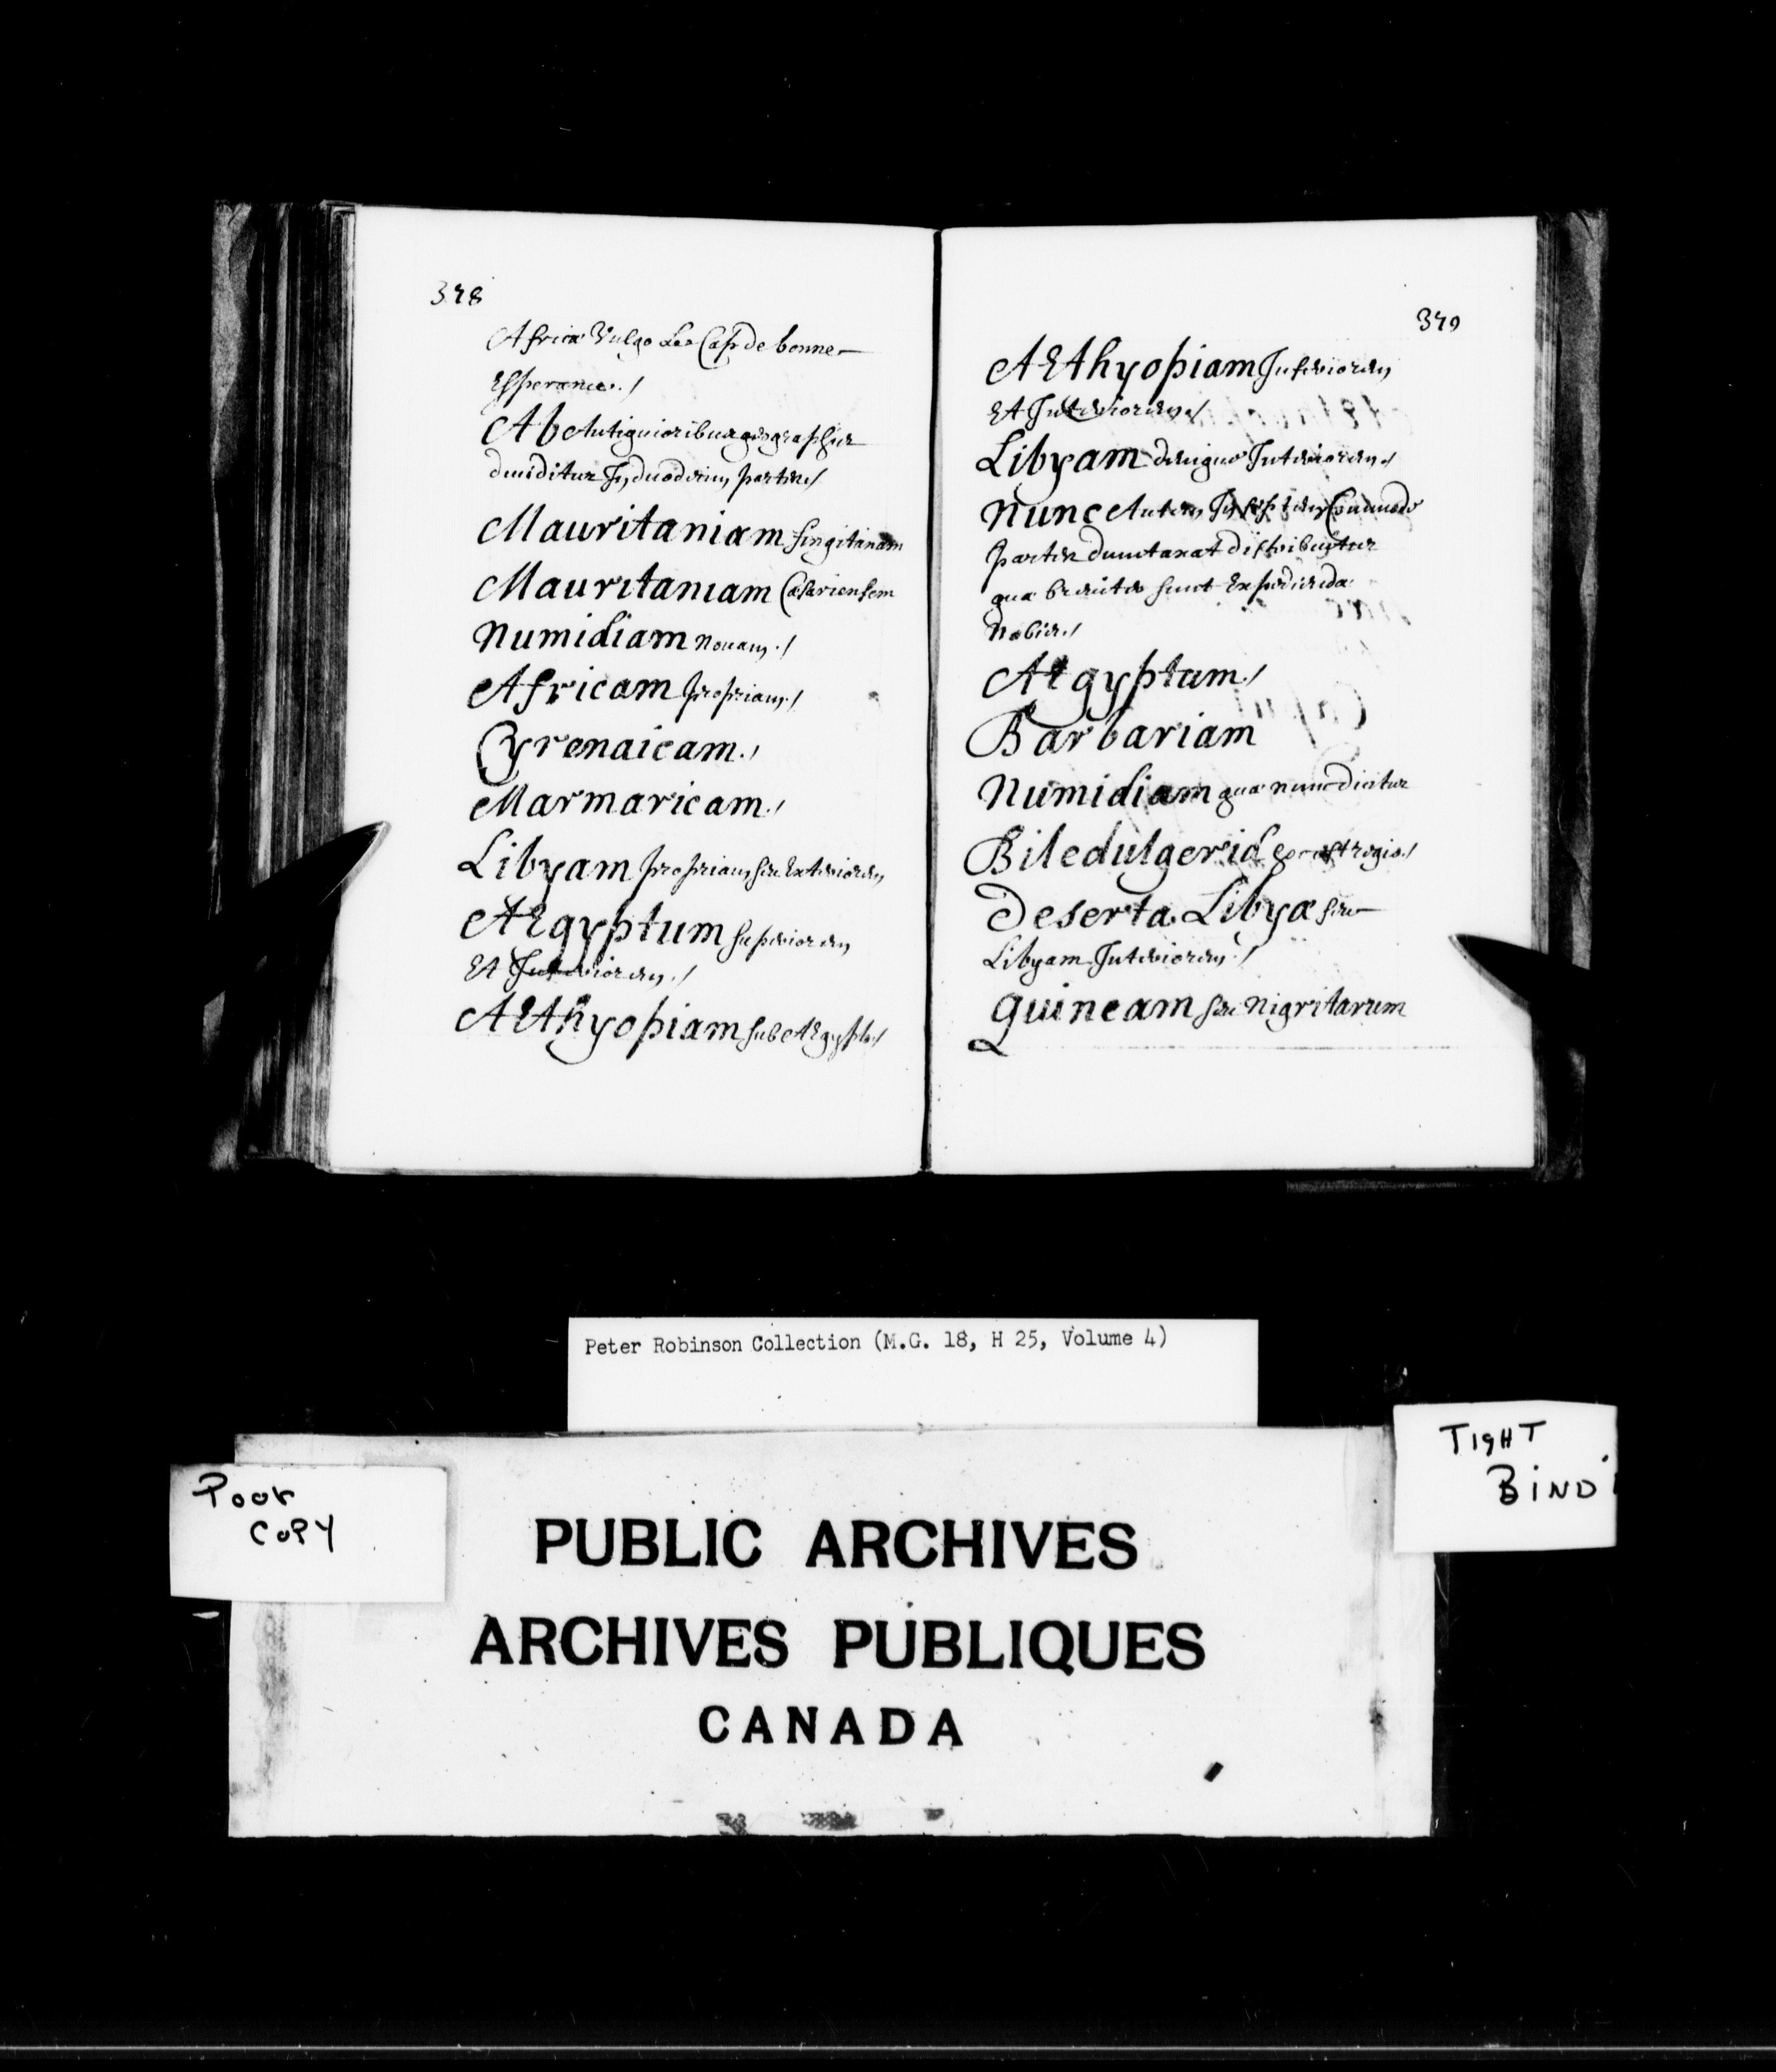 378
Africæ Vulgo Le Cap de bonne
Esperance./
Ab Antiquioribus geographis
diuiditur In duodecim partes/
Mauritaniam Tingitanam
Mauritaniam Cæsariensem
Numidiam Nouam./
Africam propriam./
Cyrenaicam./
Marmaricam./
Libyam propriam siue Exteriorem
AEgyptum superiorem
Et Inferiorem./
AEthyopiam sub AEgypto/
379
AEthyopiam Inferiorem
Et Interiorem/
Libyam denique Interiorem./
Nunc Autem In septem Commode
partes dumtaxat distribuitur
quæ breuiter sunt Expediendæ
Nobis./
AEgyptum./
Barbariam
Numidiam quæ nunc dicitur
Biledulgerid est regio./
Deserta Libyæ siue
Libyam Interiorem./
Guineam siue Nigritarum
Peter Robinson Collection (M.G. 18, H 25, Volume 4)
POOR
COPY
TIGHT
BIND
PUBLIC ARCHIVES
ARCHIVES PUBLIQUES
CANADA